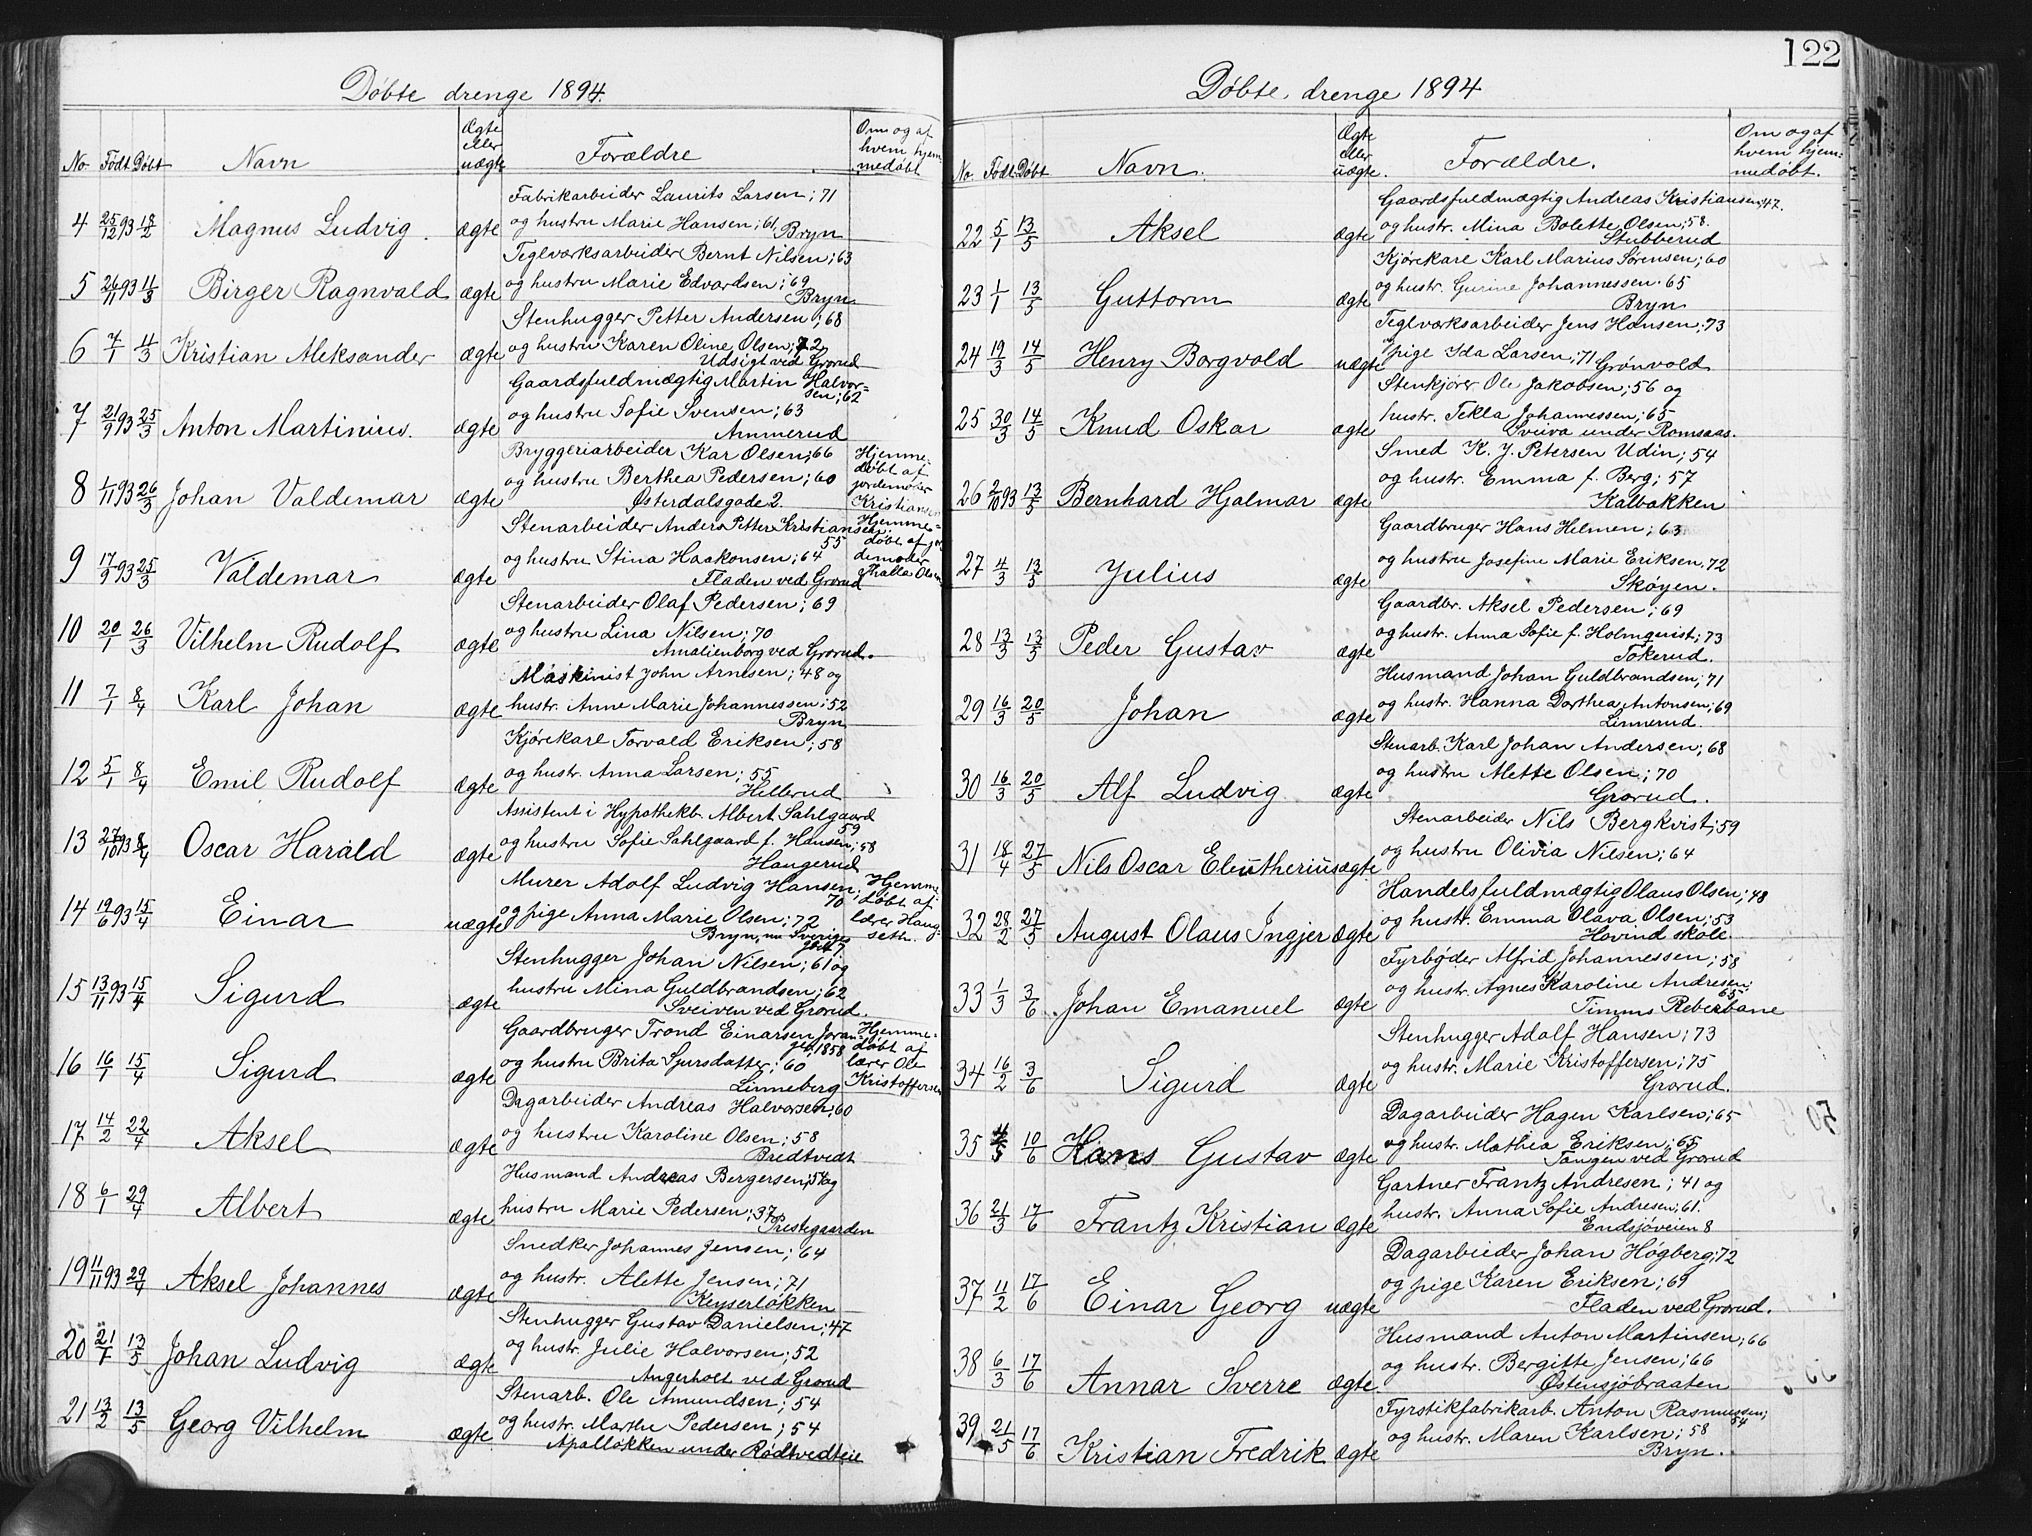 Døbte drenge 1894.
No. Født Døbt Navn Ægte eller uægte Forældre Om og af hvem hjemmedøbt
Fabrikarbeider Laurits Larsen; 71
4 25/12 93 18/2 Magnus Ludvig. ægte og hustru Marie Hansen; 61, Bryn
Teglværksarbeider Bernt Nilsen; 63
5 26/11 93 11/3 Birger Ragnvald ægte og hustru Marie Edvardsen; 69
Bryn
Stenhugger Petter Andersen; 68
6 7/1 11/3 Kristian Aleksander ægte og hustru Karen Oline Olsen; 72
Udsigt ved Grorud
Gaardsfuldmægtig Martin Halvor=
sen; 62
7 21/9 93 25/3 Anton Martinius. ægte og hustru Sofie Svensen; 63
Ammerud
Bryggeriarbeider Kar Olsen; 66
8 1/11 93 26/3 Johan Valdemar ægte og hustru Berthea Pedersen; 60
Østerdalsgade 2.
Hjemme=
døbt af
jordemoder
Kristiansen
Stenarbeider Anders Petter Kristiansen;
55
9 17/9 93 25/3 Valdemar ægte og hustru Stina Haakonsen; 64
Fladen ved Grorud
Hjemme=
døbt af jor
demoder
Thalla Olsen
Stenarbeider Olaf Pedersen; 69
10 20/1 26/3 Vilhelm Rudolf ægte og hustru Lina Nilsen; 70
Amalienborg ved Grorud.
Maskinist John Arnesen; 48 og
11 7/1 8/4 Karl Johan ægte hustr. Anne Marie Johannessen; 52
Bryn
Kjørekarl Torvald Eriksen; 58
12 5/1 8/4 Emil Rudolf ægte og hustr. Anna Larsen; 55
Hellerud
Assistent i Hypothekb. Albert Sahlgaard
59
13 27/10 93 8/4 Oscar Harald ægte og hustru Sofie Sahlgaard f. Hansen; 58
Haugerud
Murer Adolf Ludvig Hansen;
70
14 19/6 93 15/4 Einar uægte og pige Anna Marie Olsen; 72
Bryn, nu Sveriges
Hjemme
døbt af
lærer Haug=
seth.
Stenhugger Johan Nilsen; 61 og
15 13/11 93 15/4 Sigurd ægte hustru Mina Guldbrandsen; 62
Sveiven ved Grorud.
Gaardbruger Trond Einarsen Joran=
1858
16 16/1 15/4 Sigurd ægte og hustru Brita Sjursdatter; 60
Linneberg
Hjemme=
døbt af
lærer Ole
Kristoffersen
Dagarbeider Andreas Halvorsen; 60
17 14/2 22/4 Aksel ægte og hustru Karoline Olsen; 58
Bredtvedt
Husmand Andreas Bergersen; 54 og
18 6/1 29/4 Albert ægte hustru Marie Pedersen; 37
Prestegaarden
Snedker Johannes Jensen; 64
19 11/11 93 29/4 Aksel Johannes ægte og hustr. Alette Jensen; 71
Keyserløkken
Stenhugger Gustav Danielsen; 47
20 21/1 13/5 Johan Ludvig ægte og hustr. Julie Halvorsen; 52
Angerholt ved Grorud
Stenarb. Ole Amundsen; 54
21 13/2 13/5 Georg Vilhelm ægte og hustr. Marthe Pedersen; 54
Apalløkken under Rødtvedteie
122
Døbte drenge 1894
No. Født Døbt Navn. Ægte eller uægte. Forældre. Om og af hvem hjem=medøbt.
Gaardsfuldmægtig Andreas Kristiansen; 47.
22 5/1 13/5 Aksel ægte og hustr. Mina Bolette Olsen; 58.
Stubberud
Kjørekarl Karl Marius Sørensen; 60
23 1/1 13/5 Guttorm ægte og hustr. Gurine Johannessen. 65
Bryn
Teglværksarbeider Jens Hansen; 73
24 19/3 14/5 Henry Borgvald uægte pige Ida Larsen; 71 Grønvold
Stenkjører Ole Jakobsen; 56 og
25 30/3 14/5 Knud Oskar ægte hustr. Tekla Johannessen; 65
Sveiva under Romsaas.
Smed K. J. Petersen Udin; 54
26 2/10 93 13/5 Bernhard Hjalmar ægte og hustr. Emma f. Berg; 57
Kalbakken
Gaardbruger Hans Hilmen; 63
27 4/3 13/5 Julius ægte og hustru Josefine Marie Eriksen, 72
Skøyen.
Gaardbr. Aksel Pedersen; 69
28 13/3 13/5 Peder Gustav ægte og hustr. Anna Sofie f. Holmqvist; 73
Tokerud.
Husmand Johan Guldbrandsen; 71
29 16/3 20/5 Johan ægte og hustr. Hanna Dorthea Antonsen; 69
Linnerud.
Stenarb. Karl Johan Andersen; 68
30 16/3 20/5 Alf Ludvig ægte og hustru Alette Olsen; 70
Grorud.
Stenarbeider Nils Bergkvist; 59
31 18/4 27/5 Nils Oscar Eleutherius ægte og hustru Olivia Nilsen; 64
Handelsfuldmægtig Olaus Olsen; 48
32 28/2 27/5 August Olaus Ingjer ægte og hustr. Emma Olava Olsen; 53
Hovind skole.
Fyrbøder Alfrid Johannessen; 58
33 1/3 3/6 Johan Emanuel ægte og hustr. Agnes Karoline Andresen;
65
Timms Reberbane
Stenhugger Adolf Hansen; 73
34 16/2 3/6 Sigurd ægte og hustr. Marie Kristoffersen; 75
Grorud.
Dagarbeider Hagen Karlsen; 65
35 10/6 Hans Gustav ægte og hustr. Mathea Eriksen; 65
Tangen ved Grorud
Gartner Frantz Andresen; 41 og
36 21/3 17/6 Frantz Kristian ægte hustr. Anna Sofie Andresen; 61.
Endsjøveien 8
Dagarbeider Johan Høgberg; 72
37 11/2 17/6 Einar Georg uægte og pige Karen Eriksen; 69
Fladen ved Grorud.
Husmand Anton Martinsen; 66
38 6/3 17/6 Annar Sverre ægte og hustr. Bergitte Jensen; 66
Østensjøbraaten
Fyrstikfabrikarb. Anton Rasmussen;
54
39 21/5 17/6 Kristian Fredrik ægte og hustr. Maren Karlsen; 58
Bryn.